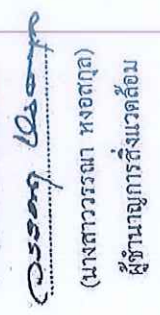 (นางสาววรรณา หงอสกุล)
ผู้ชำนาญการสิ่งแวดล้อม